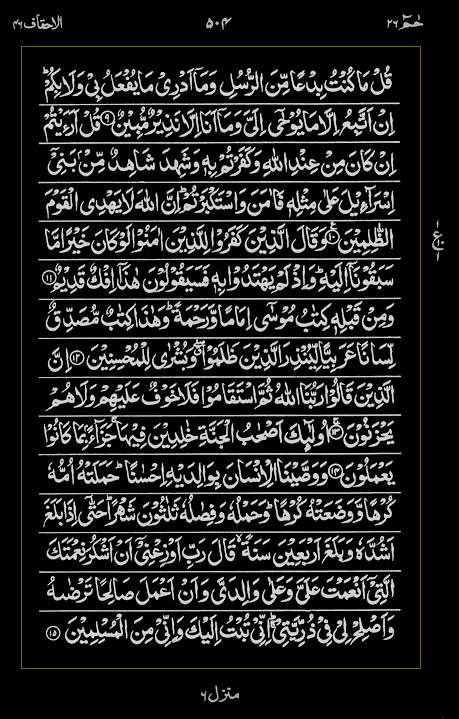 الاحقاف ۴۶
۵۰۴
حٰمٓ ۲۶
قُلْ مَا كُنْتُ بِدْعًا مِّنَ الرُّسُلِ وَمَاۤ اَدْرِىْ مَا يُفْعَلُ بِىْ وَلَا بِكُمْؕ
اِنْ اَتَّبِعُ اِلَّا مَا يُوْحٰٓى اِلَىَّ وَمَاۤ اَنَا اِلَّا نَذِيْرٌ مُّبِيْنٌ ۹ قُلْ اَرَءَيْتُمْ
اِنْ كَانَ مِنْ عِنْدِ اللّٰهِ وَكَفَرْتُمْ بِهٖ وَشَهِدَ شَاهِدٌ مِّنْۢ بَنِىْۤ
اِسْرَآءِيْلَ عَلٰى مِثْلِهٖ فَاٰمَنَ وَاسْتَكْبَرْتُمْؕ اِنَّ اللّٰهَ لَا يَهْدِى الْقَوْمَ
الظّٰلِمِيْنَ ۱۰ وَقَالَ الَّذِيْنَ كَفَرُوْا لِلَّذِيْنَ اٰمَنُوْا لَوْ كَانَ خَيْرًا مَّا
سَبَقُوْنَاۤ اِلَيْهِؕ وَاِذْ لَمْ يَهْتَدُوْا بِهٖ فَسَيَقُوْلُوْنَ هٰذَاۤ اِفْكٌ قَدِيْمٌ ۱۱
وَمِنْ قَبْلِهٖ كِتٰبُ مُوْسٰٓى اِمَامًا وَّرَحْمَةًؕ وَهٰذَا كِتٰبٌ مُّصَدِّقٌ
لِّسَانًا عَرَبِيًّا لِّيُنْذِرَ الَّذِيْنَ ظَلَمُوْاۖ وَبُشْرٰى لِلْمُحْسِنِيْنَ ۱۲ اِنَّ
الَّذِيْنَ قَالُوْا رَبُّنَا اللّٰهُ ثُمَّ اسْتَقَامُوْا فَلَا خَوْفٌ عَلَيْهِمْ وَلَا هُمْ
يَحْزَنُوْنَ ۱۳ اُولٰٓٮِٕكَ اَصْحٰبُ الْجَنَّةِ خٰلِدِيْنَ فِيْهَاۚ جَزَآءًۢ بِمَا كَانُوْا
يَعْمَلُوْنَ ۱۴ وَوَصَّيْنَا الْاِنْسَانَ بِوَالِدَيْهِ اِحْسٰنًاؕ حَمَلَتْهُ اُمُّهٗ
كُرْهًا وَّوَضَعَتْهُ كُرْهًاؕ وَحَمْلُهٗ وَفِصٰلُهٗ ثَلٰثُوْنَ شَهْرًاؕ حَتّٰٓى اِذَا بَلَغَ
اَشُدَّهٗ وَبَلَغَ اَرْبَعِيْنَ سَنَةًۙ قَالَ رَبِّ اَوْزِعْنِىْۤ اَنْ اَشْكُرَ نِعْمَتَكَ
الَّتِىْۤ اَنْعَمْتَ عَلَىَّ وَعَلٰى وَالِدَىَّ وَاَنْ اَعْمَلَ صَالِحًا تَرْضٰٮهُ
وَاَصْلِحْ لِىْ فِىْ ذُرِّيَّتِىْؕ اِنِّىْ تُبْتُ اِلَيْكَ وَاِنِّىْ مِنَ الْمُسْلِمِيْنَ ۱۵
منزل ۶